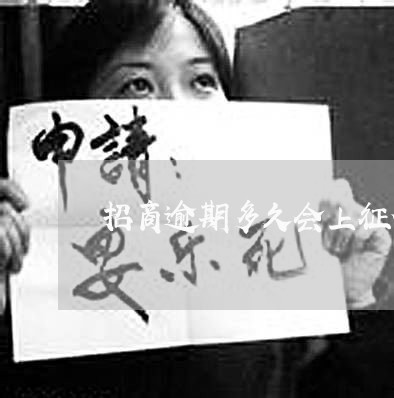 申請：
招商逾期多久会上征
安乐死